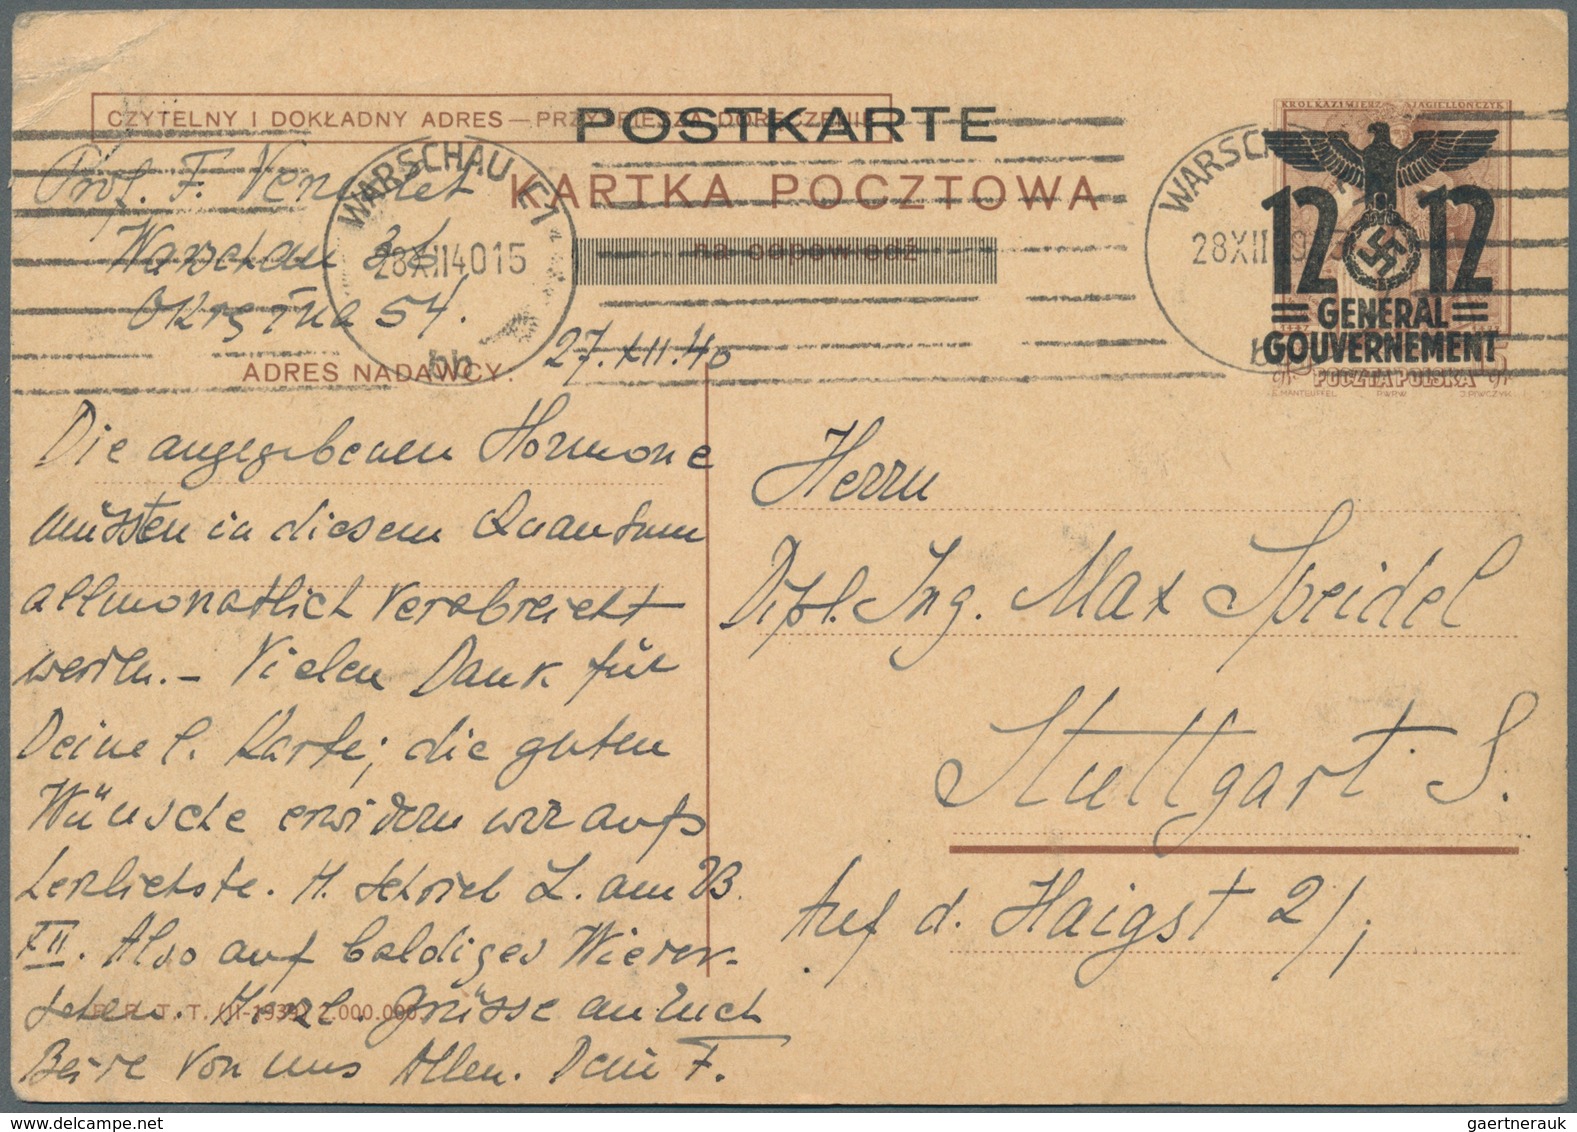 CZYTELNY I DOKŁADNY ADRES — PRZYSPIESZA DORĘCZENIE
POSTKARTE
KARTKA POCZTOWA
na odpowiedź
KRÓL KAZIMIERZ JAGIELLOŃCZYK
12 12
GENERAL
GOUVERNEMENT
15 POCZTA POLSKA 15
R.MANTEUFFEL PWPW J.PIWCZYK
WARSCHAU C1
28XII4015
bb
WARSCHAU
28XII
Prof. F. Venulet
Warschau
Okrężna 54.
ADRES NADAWCY.
27.XII.40
Die angegebenen Hormone
müssten in diesem Quantum
allmonatlich verabreicht
werden. – Vielen Dank für
Deine l. Karte; die guten
Wünsche erwidern wir aufs
herzlichste. H. schrieb L. am 23.
XII. Also auf baldiges Wieder-
sehen. Herzl. Grüsse an Euch
Beide von uns Allen. Dein F.
P. P. T. T. (II-1939) 2.000.000.
Herrn
Dipl. Ing. Max Speidel
Stuttgart S.
Auf d. Haigst 21
gaertnerauk